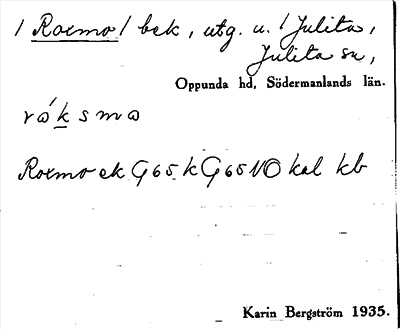 / Roxmo / bek, utg. u. / Julita,
Julita sn,
Oppunda hd, Södermanlands län.
ráksmo
Roxmo ek G65 k G65NO kal kb
Karin Bergström 1935.